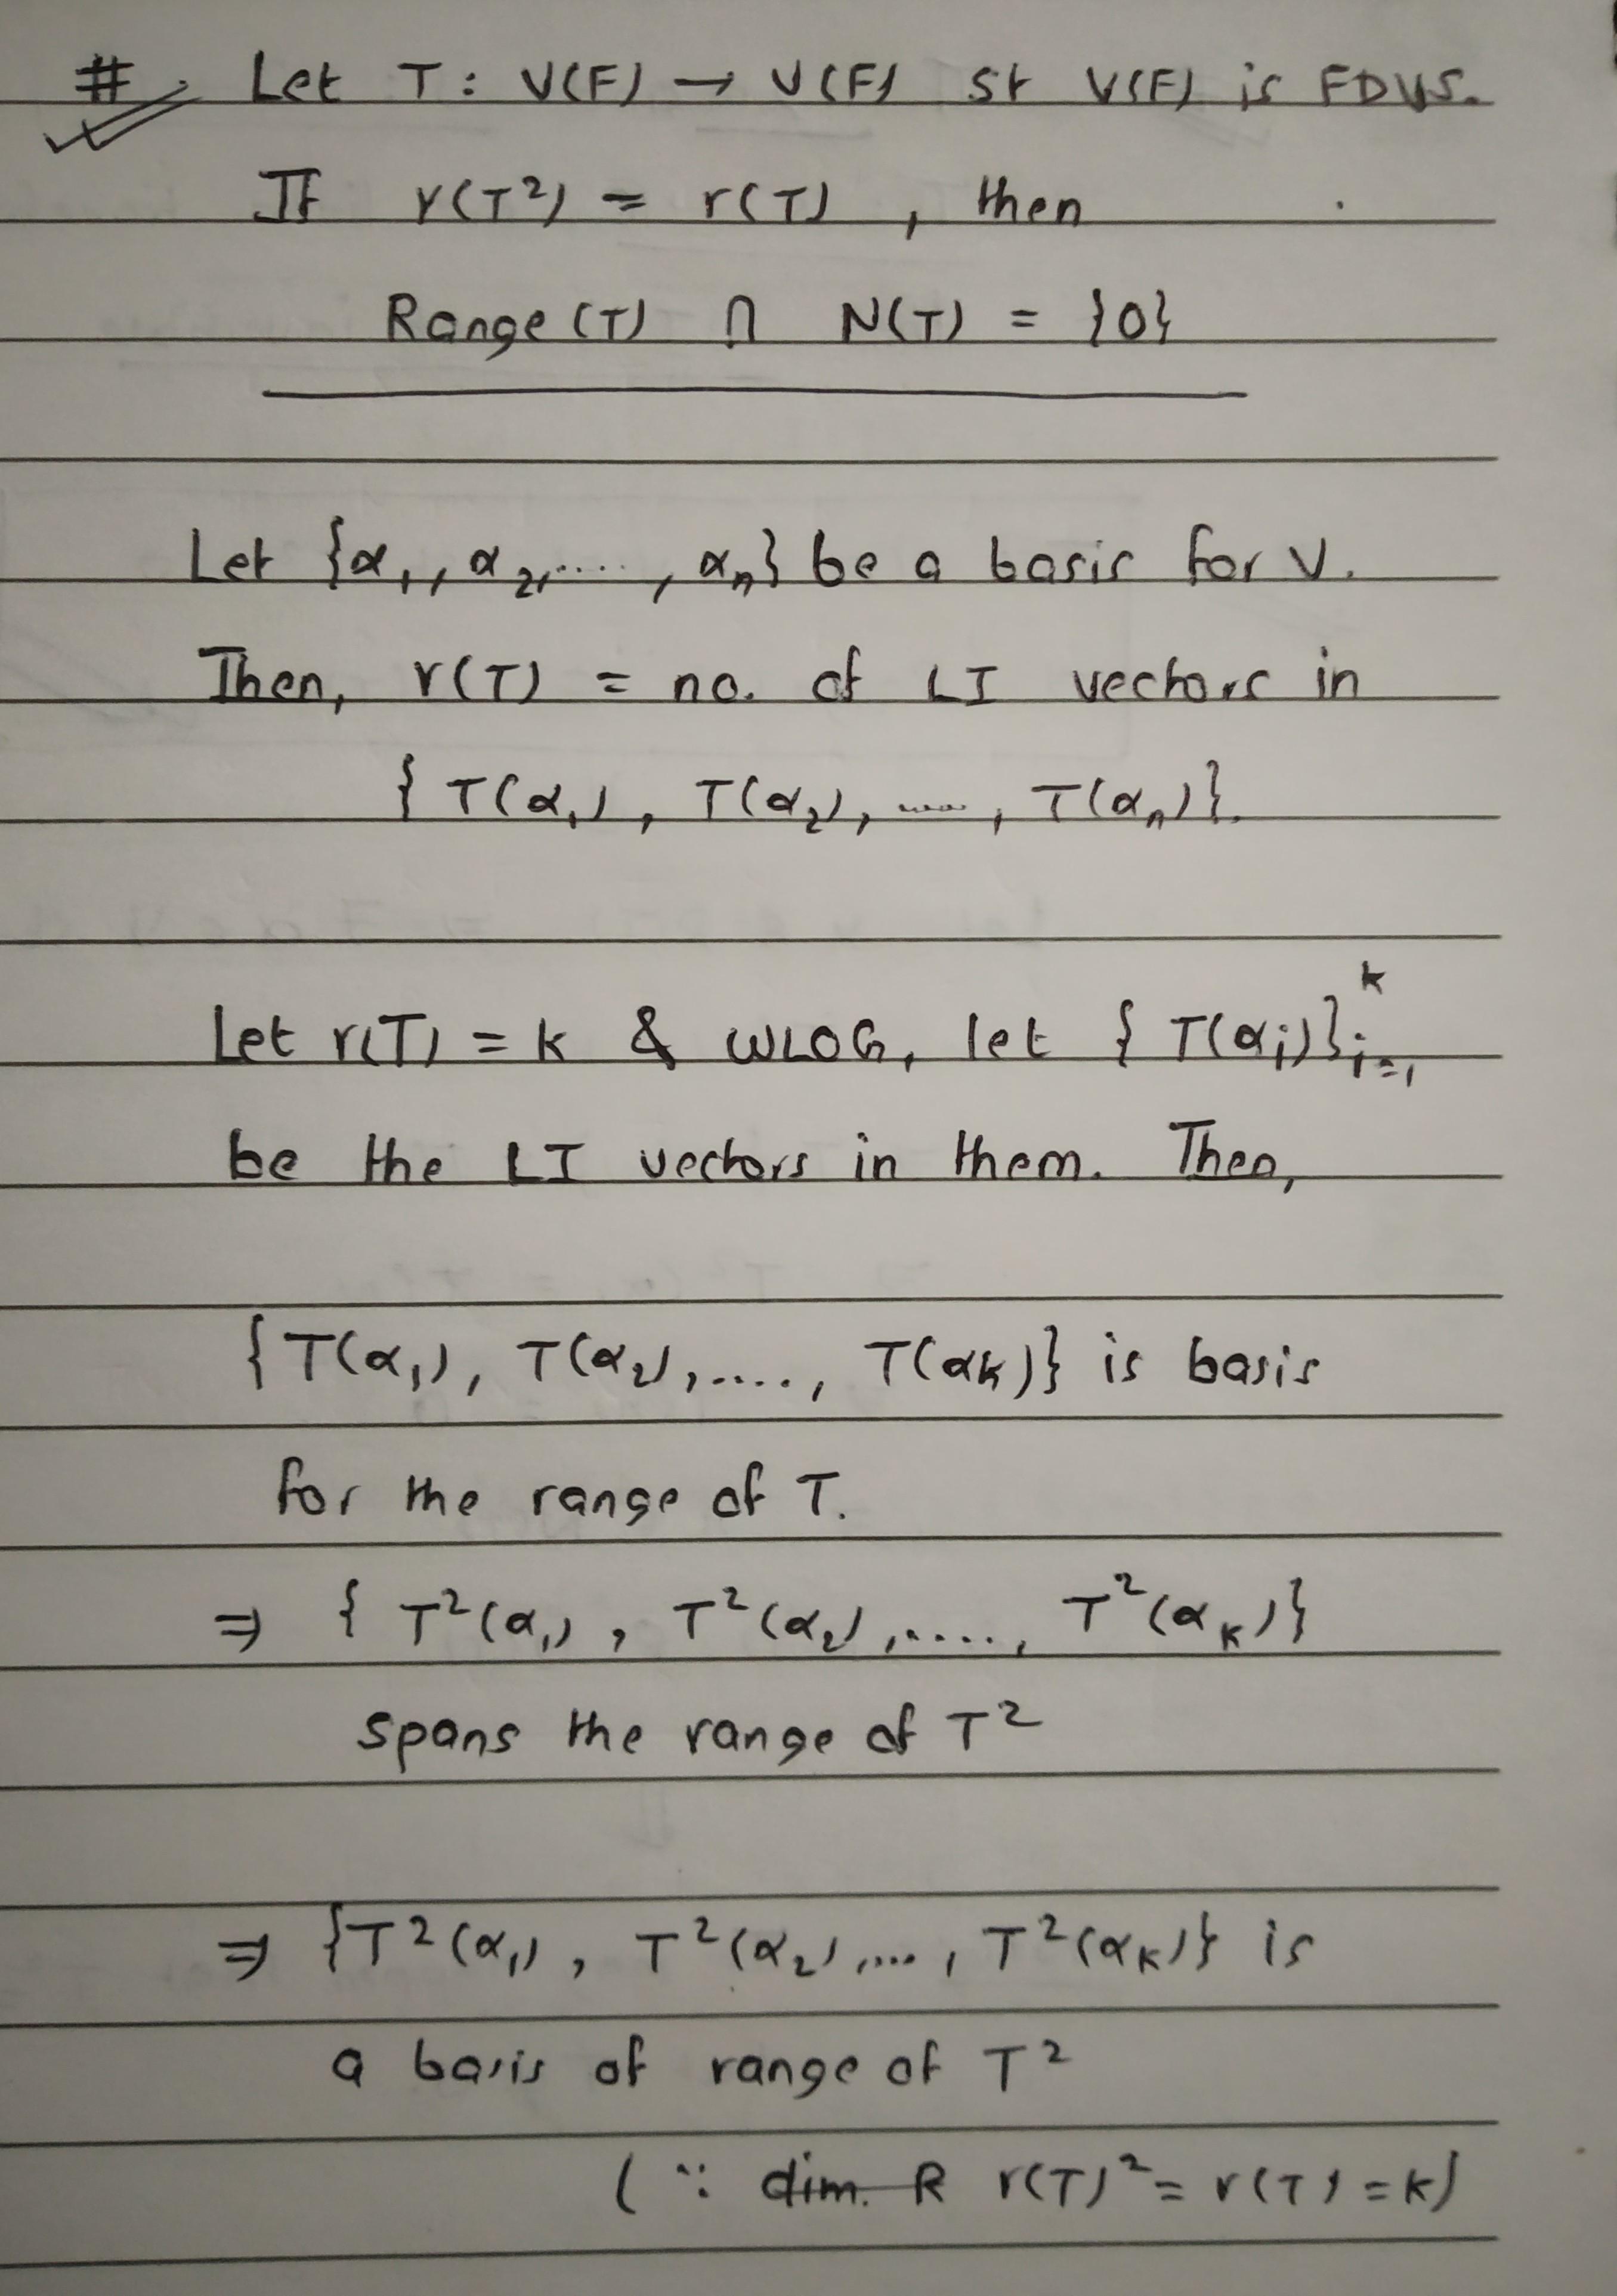 # Let T : V(F) → V(F) st V(F) is FDVS.
If r(T²) = r(T) , then
Range (T) ∩ N(T) = {0}
Let {α₁, α₂, ....., αₙ} be a basis for V.
Then, r(T) = no. of LI vectors in
{ T(α₁), T(α₂), ....., T(αₙ)}.
Let r(T) = k & WLOG, let { T(αᵢ)}ᵢ₌₁ᵏ
be the LI vectors in them. Then,
{T(α₁), T(α₂), ....., T(αₖ)} is basis
for the range of T.
⇒ { T²(α₁), T²(α₂), ....., T²(αₖ)}
spans the range of T²
⇒ {T²(α₁), T²(α₂), ...., T²(αₖ)} is
a basis of range of T²
( ∵ dim. R r(T)² = r(T) = k)